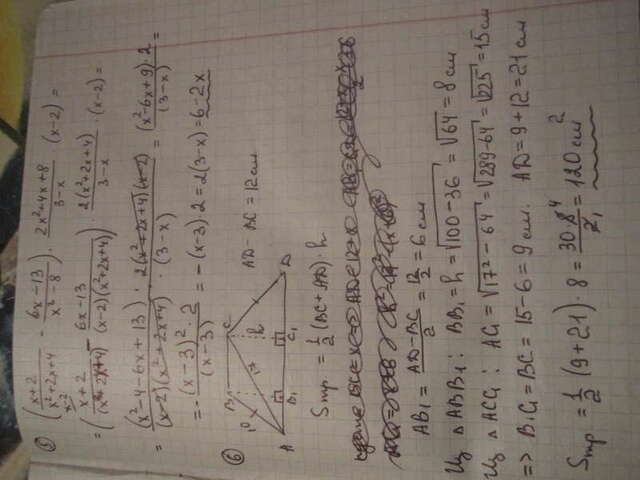 ⑤ ((x+2)/(x²+2x+4) - (6x-13)/(x³-8)) · (2x²+4x+8)/(3-x) · (x-2) =
x-2
= ((x+2)/(x²+2x+4) - (6x-13)/((x-2)(x²+2x+4))) · 2(x²+2x+4)/(3-x) · (x-2) =
= (x²-4-6x+13) · 2(x²+2x+4)(x-2) / ((x-2)(x²+2x+4) · (3-x)) = (x²-6x+9)·2/(3-x) =
= - (x-3)²·2/(x-3) = -(x-3)·2 = 2(3-x) = 6-2x
⑥ B C
10 17 h AD - BC = 12см
A B₁ C₁ D
Sтр = 1/2 (BC + AD) · h
AB₁ = (AD-BC)/2 = 12/2 = 6 см
Из △ABB₁: BB₁ = h = √(100-36) = √64 = 8 см
Из △ACC₁: AC₁ = √(17²-64) = √(289-64) = √225 = 15 см
=> B₁C₁ = BC = 15-6 = 9 см. AD = 9+12 = 21 см
Sтр = 1/2 (9+21) · 8 = 30·8⁴/2₁ = 120 см²